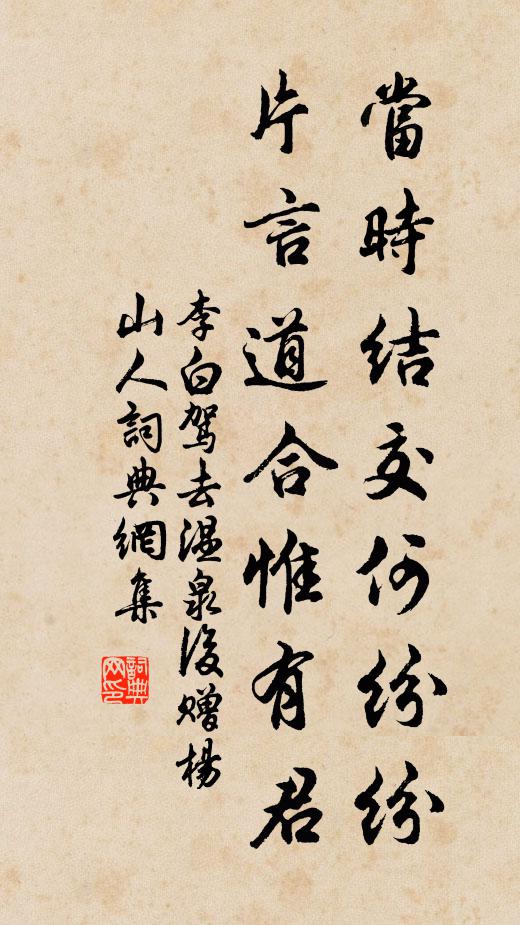 當時結交何紛紛
片言道合惟有君
李白駕去溫泉後贈楊
山人詞典網集
詞典
网印